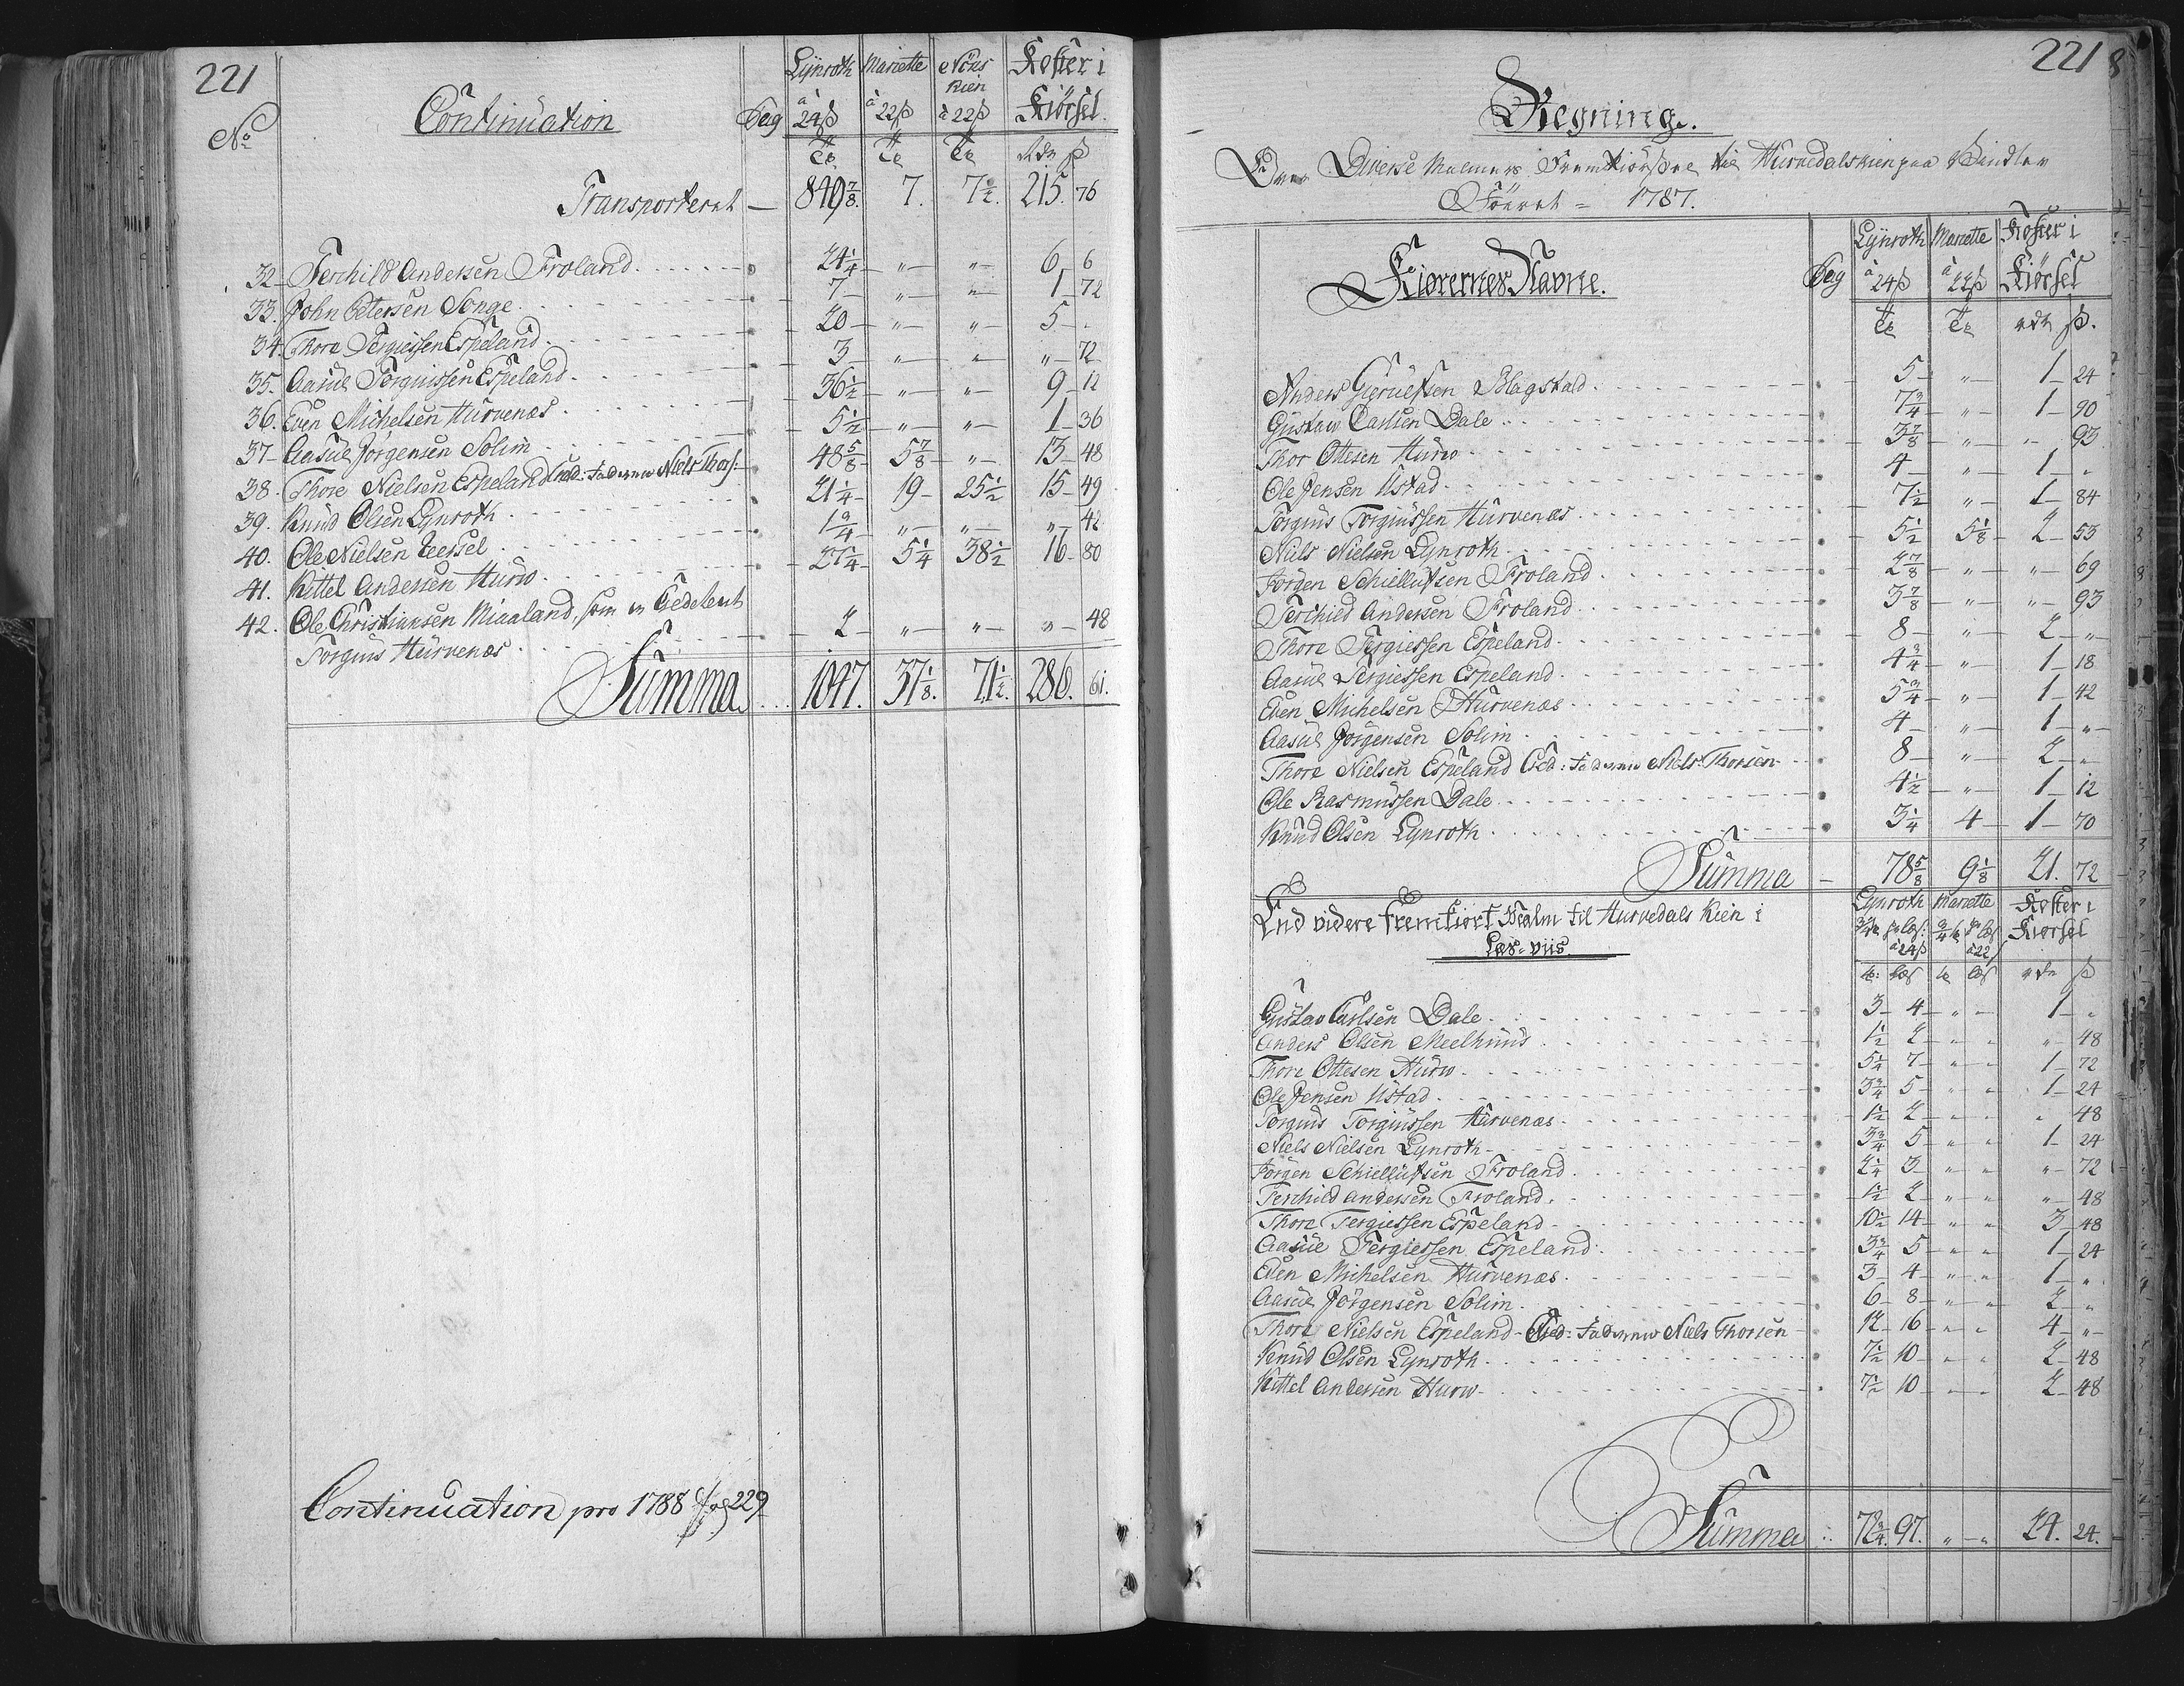 221
No Continuation Pag Lÿnroth à 24ß Mariette à 22ß Nöes Kien à 22ß Koster i Kiörsel
Tr Tr Tr rdr ß
Transporteret — 849 7/8. 7. 7 1/2. 215. 76
32 Terchild Andersen Froland 24 1/4 " " 6 6
33. John Petersen Songe 7 " " 1 72
34. Thore Tergiessen Espeland 20 " " 5 .
35. Aasul Torguissen Espeland 3 " " " 72
36. Even Michelsen Hurvenæs 36 1/2 " " 9 12
37 Aasul Jörgensen Solim 5 1/2 " " 1 36
38. Thore Nielsen Espeland Niels Thors: 48 5/8 5 7/8 " 13 48
39. Knud Olsen Lynroth 21 1/4 19 25 1/2 15 49
40. Ole Nielsen Eersel 1 3/4 " " " 42
41. Kittel Andersen Hurw 27 1/4 5 1/4 38 1/2 16 80
42. Ole Christiansen Miaaland, som er
Torguis Hurvenæs 2 " " " 48
Summa 1047. 37 1/8. 71 1/2. 286. 61.
Continuation pro 1788 pag 229
221
Regning.
Over Diverse Malmers Fremkiörsel til Hurvedals kien paa
Föeret = 1787.
Kiörernes Navne. Pag Lÿnroth à 24ß Mariette à 22ß Koster i Kiörsel
Tr Tr rdr ß.
Anders Blagstad 5 " 1 24
Gustav Carlsen Dale 7 3/4 " 1 90
Thor Ottesen Hurw 3 7/8 " " 93
Ole Jensen Ustad 4 " 1 "
Torguis Torgiussen Hurvenæs 7 1/2 " 1 84
Niels Nielsen Lynroth 5 1/2 5 1/8 2 53
Jörgen Schiellufsen Froland 2 7/8 " " 69
Terchild Andersen Froland 3 7/8 " " 93
Thore Tergiessen Espeland 8 " 2 "
Aasul Tergiessen Espeland 4 3/4 " 1 18
Even Michelsen Hurvenæs 5 3/4 " 1 42
Aasul Jörgensen Solim 4 " 1 "
Thore Nielsen Espeland Niels Thorsen 8 " 2 "
Ole Rasmussen Dale 4 1/2 " 1 12
Knud Olsen Lynroth 3 1/4 4 1 70
Summa 78 5/8 9 1/8 21. 72
End videre fremkiört Malm til Hurvedals Kien i
Læs-viis.
Lynroth 3/4 tr pr læs: à 24ß Mariette 3/4 tr pr læs à 22ß Koster i Kiörsel
tr: læs tr læs rdr ß
Gustav Carlsen Dale 3 4 " " 1 "
Anders Olsen Meelhuus 1 1/2 2 " " " 48
Thore Ottesen Hurw 5 1/4 7 " " 1 72
Ole Jensen Ustad 3 3/4 5 " " 1 24
Torguis Torgiussen Hurvenæs 1 1/2 2 " " " 48
Niels Nielsen Lynroth 3 3/4 5 " " 1 24
Jörgen Schiellufsen Froland 2 1/4 3 " " " 72
Terchild Andersen Froland 1 1/2 2 " " " 48
Thore Tergiessen Espeland 10 1/2 14 " " 3 48
Aasul Tergiessen Espeland 3 3/4 5 " " 1 24
Even Michelsen Hurvenæs 3 4 " " 1 "
Aasul Jörgensen Solim 6 8 " " 2 "
Thore Nielsen Espeland Niels Thorsen 12 16 " " 4 "
Knud Olsen Lynroth 7 1/2 10 " " 2 48
Kittel Andersen Hurw 7 1/2 10 " " 2 48
Summa 72 3/4. 97. " " 24. 24.